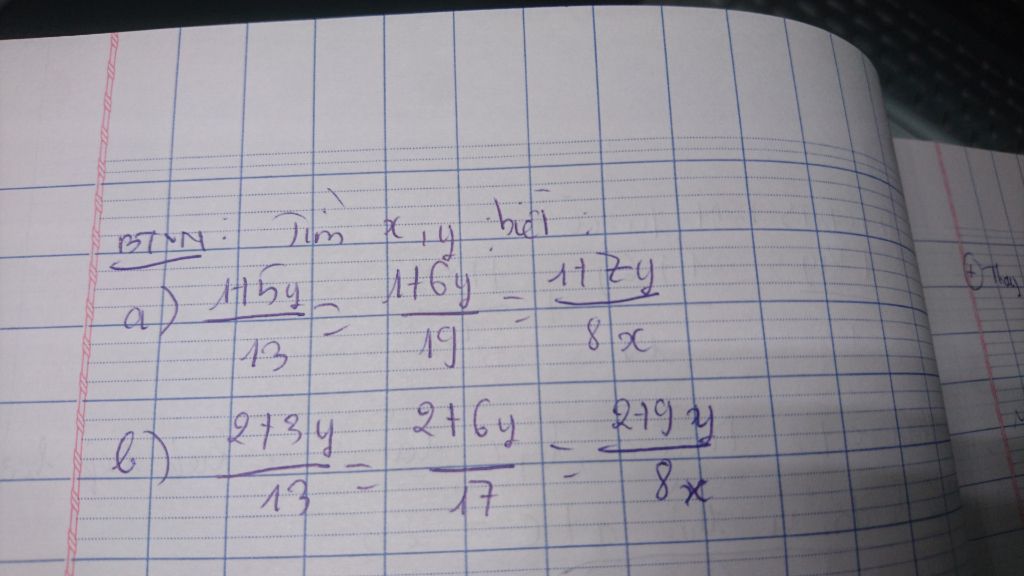 BTVN : Tìm x, y biết :
a) \frac{1+5y}{13} = \frac{1+6y}{19} = \frac{1+7y}{8x}
b) \frac{2+3y}{13} = \frac{2+6y}{17} = \frac{2+9y}{8x}